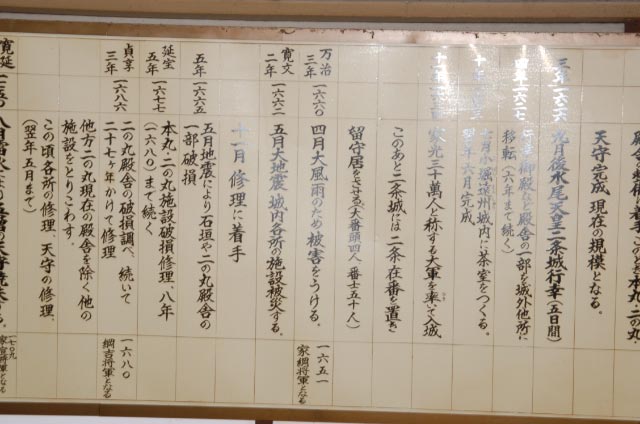 天守完成 現在の規模となる。
三年 一六二六 九月 後水尾天皇二条城行幸(五日間)
四年 一六二七 御殿など殿舎の一部を城外他所に
移転(六年まで続く)
七月 小堀遠州城内に茶室をつくる。
翌年 六月完成
家光三十万人と称する大軍を率て入城
このあと二条城には二条在番を置き
留守居をさせる(大番頭四人 番士五十人)
一六五一
家綱将軍となる
万治
三年 一六六〇 四月 大風雨のため被害をうける。
寛文
二年 一六六二 五月 大地震 城内各所の施設被災する。
十一月 修理に着手
五年 一六六五 五月地震により石垣や二の丸殿舎の
一部破損
延宝
五年 一六七七 本丸・二の丸施設破損修理、八年
(一六八〇)まで続く
一六八〇
綱吉将軍となる
貞享
三年 一六八六 二の丸殿舎の破損調べ、続いて
二十七ヶ年かけて修理
他方二の丸現在の殿舎を除く他の
施設をとりこわす。
この頃各所の修理、天守の修理、
(翌年五月まで)
一七〇九
家宣将軍となる
寛延